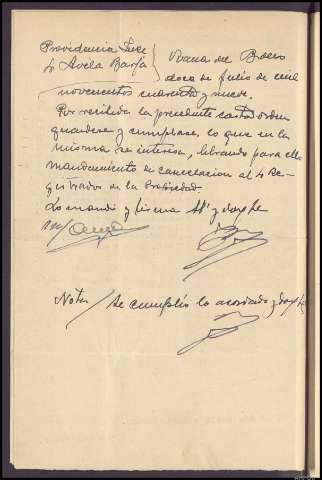 Providencia Juez
Sr Avila Barja
Barco
doce de Julio de mil
novecientos cuarenta y nueve.
Por recibida la precedente carta orden
guardese y cumplase lo que en la
misma se interesa, librando para ello
mandamiento de cancelacion al Sr Re-
gistrador de la Propiedad.
Lo mandó y firma Sª y doy fe
Nota/ Se cumplió lo acordado y doy fe